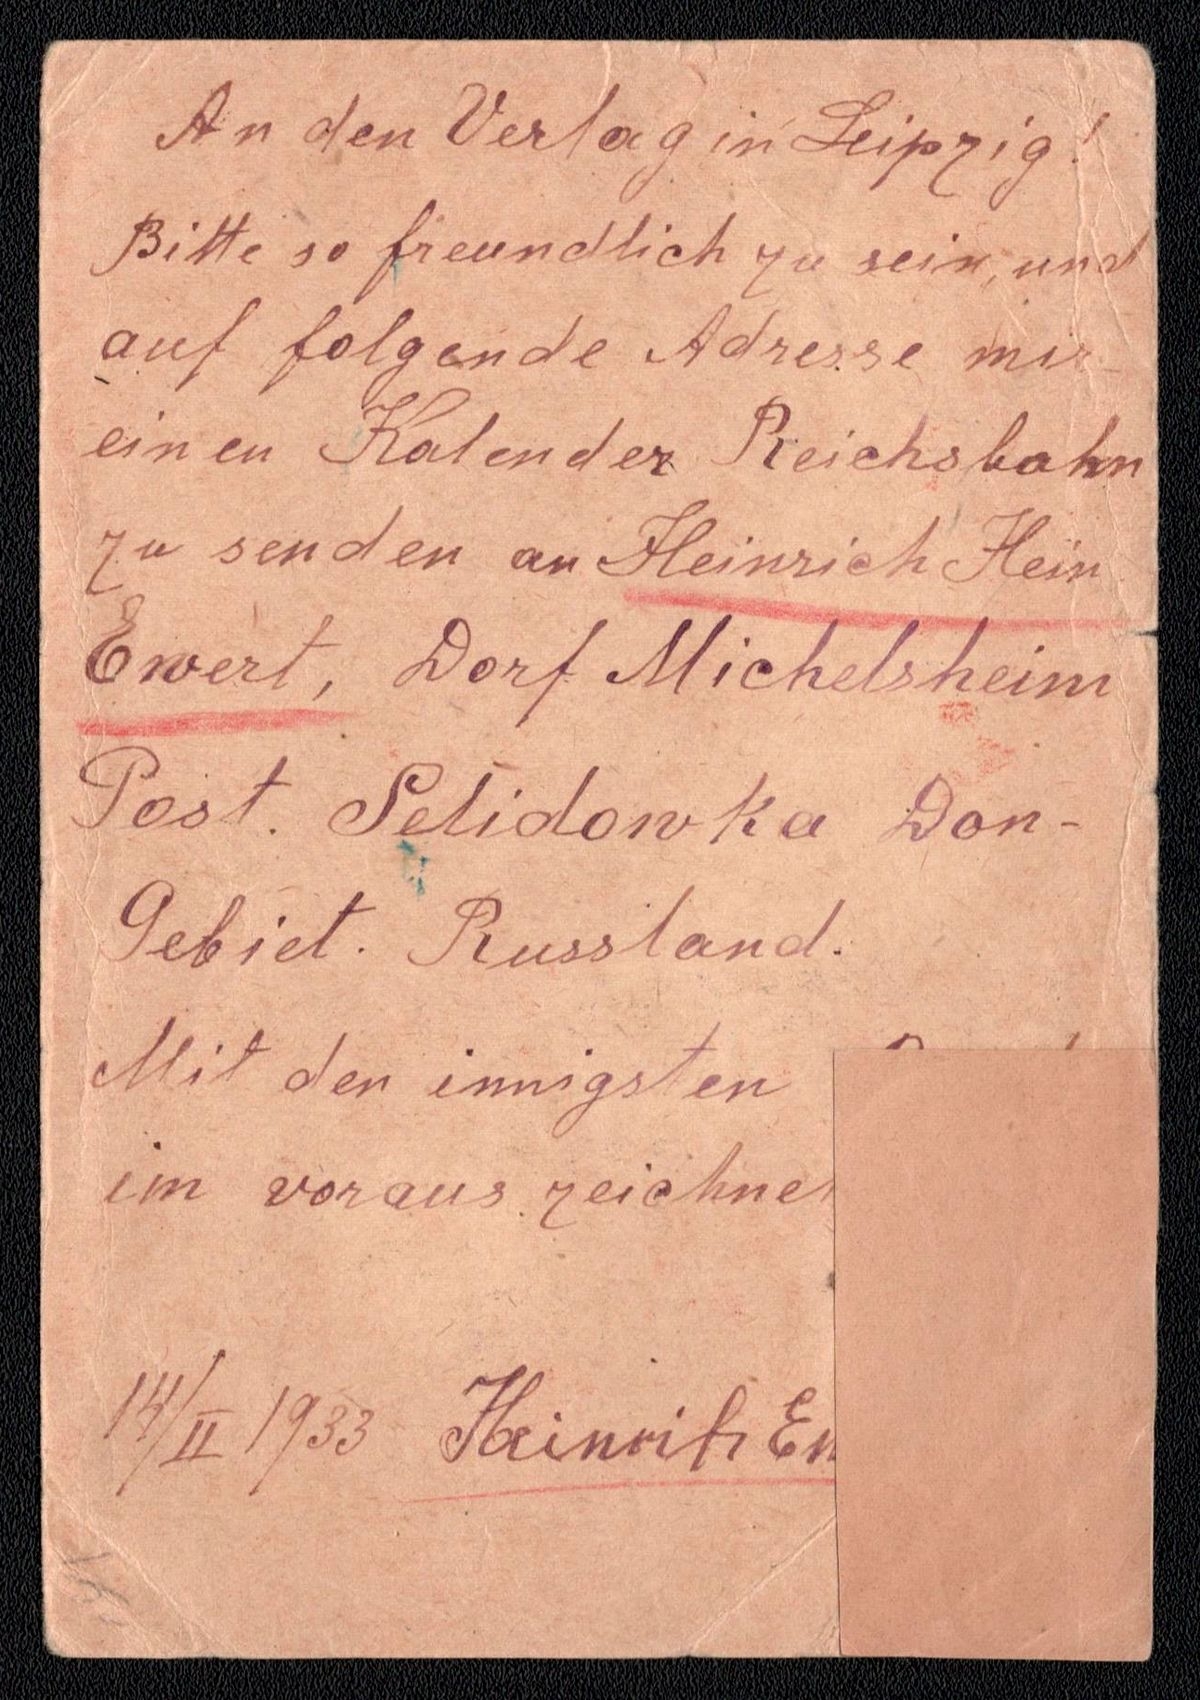 An den Verlag in Leipzig!
Bitte so freundlich zu sein, und
auf folgende Adresse mir
einen Kalender Reichsbahn
zu senden an Heinrich Hein
Ewert, Dorf Michelsheim
Post. Selidowka Don-
Gebiet. Russland.
Mit den innigsten
im voraus zeichne
14/II 1933 Heinrich